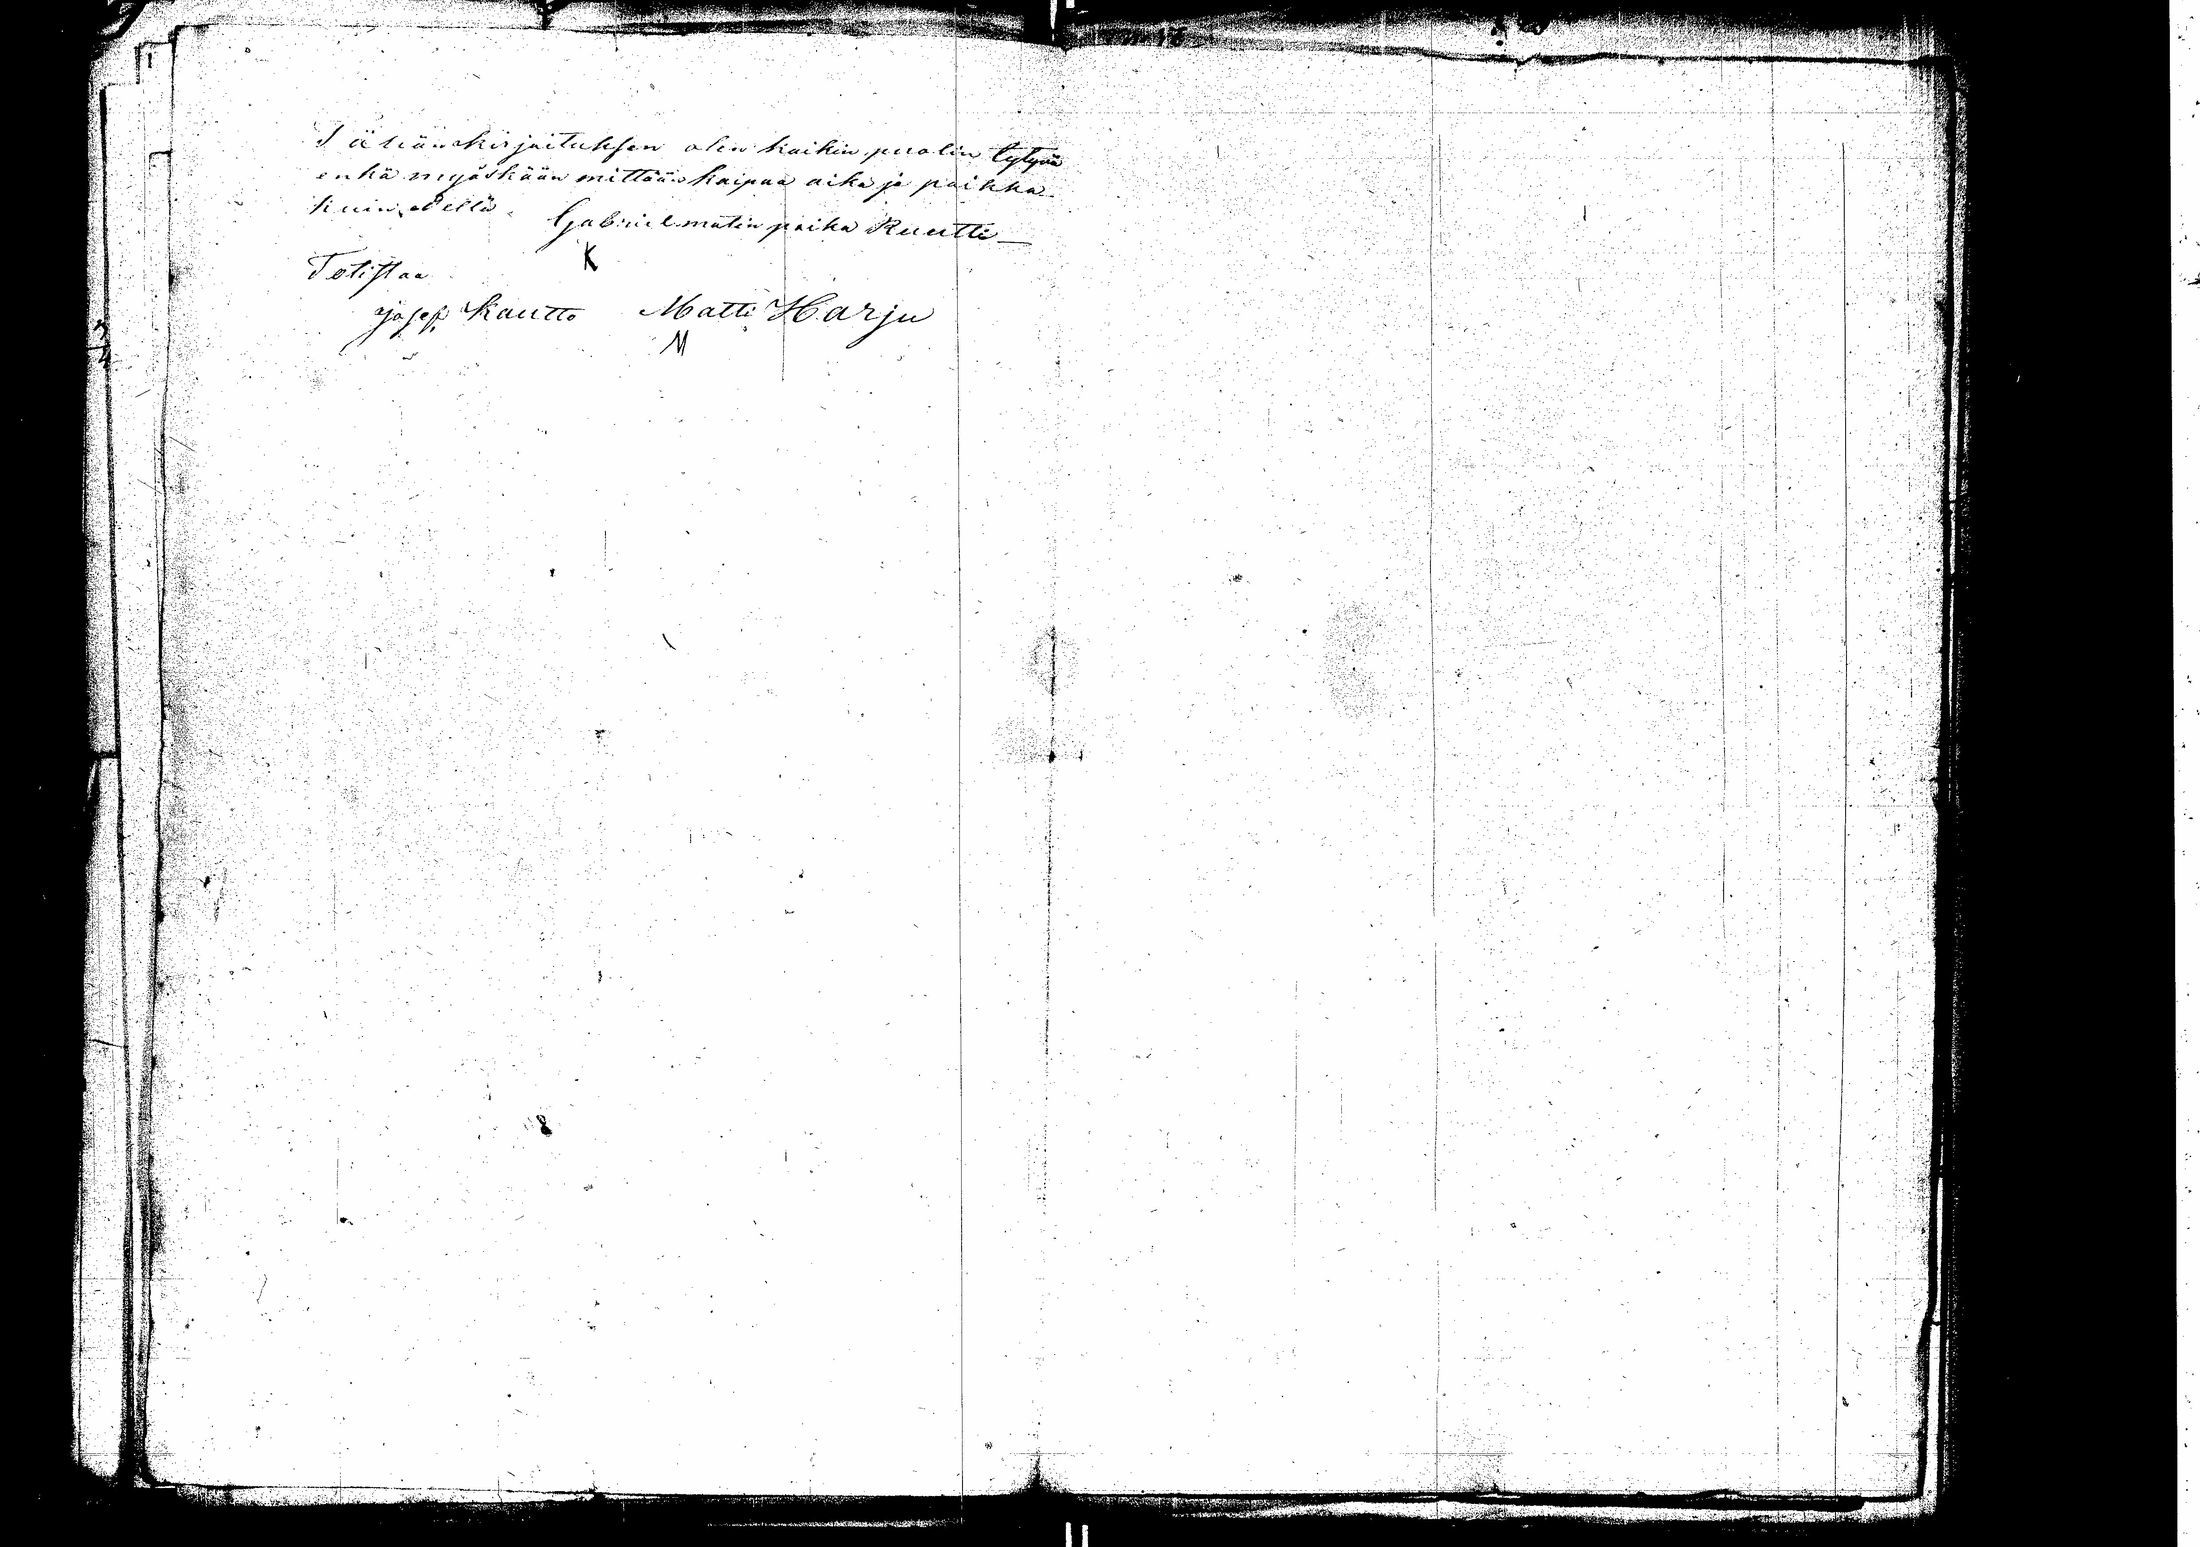 Tähän kirjoituksen olen kaikin puolin tytyvä
enkä myöskään mittään kaipaa aika ja paikka
kuin edellä. Gabriel matin poika Ruutti
K
Totistaa
Josep Kautto Matti Harju
M